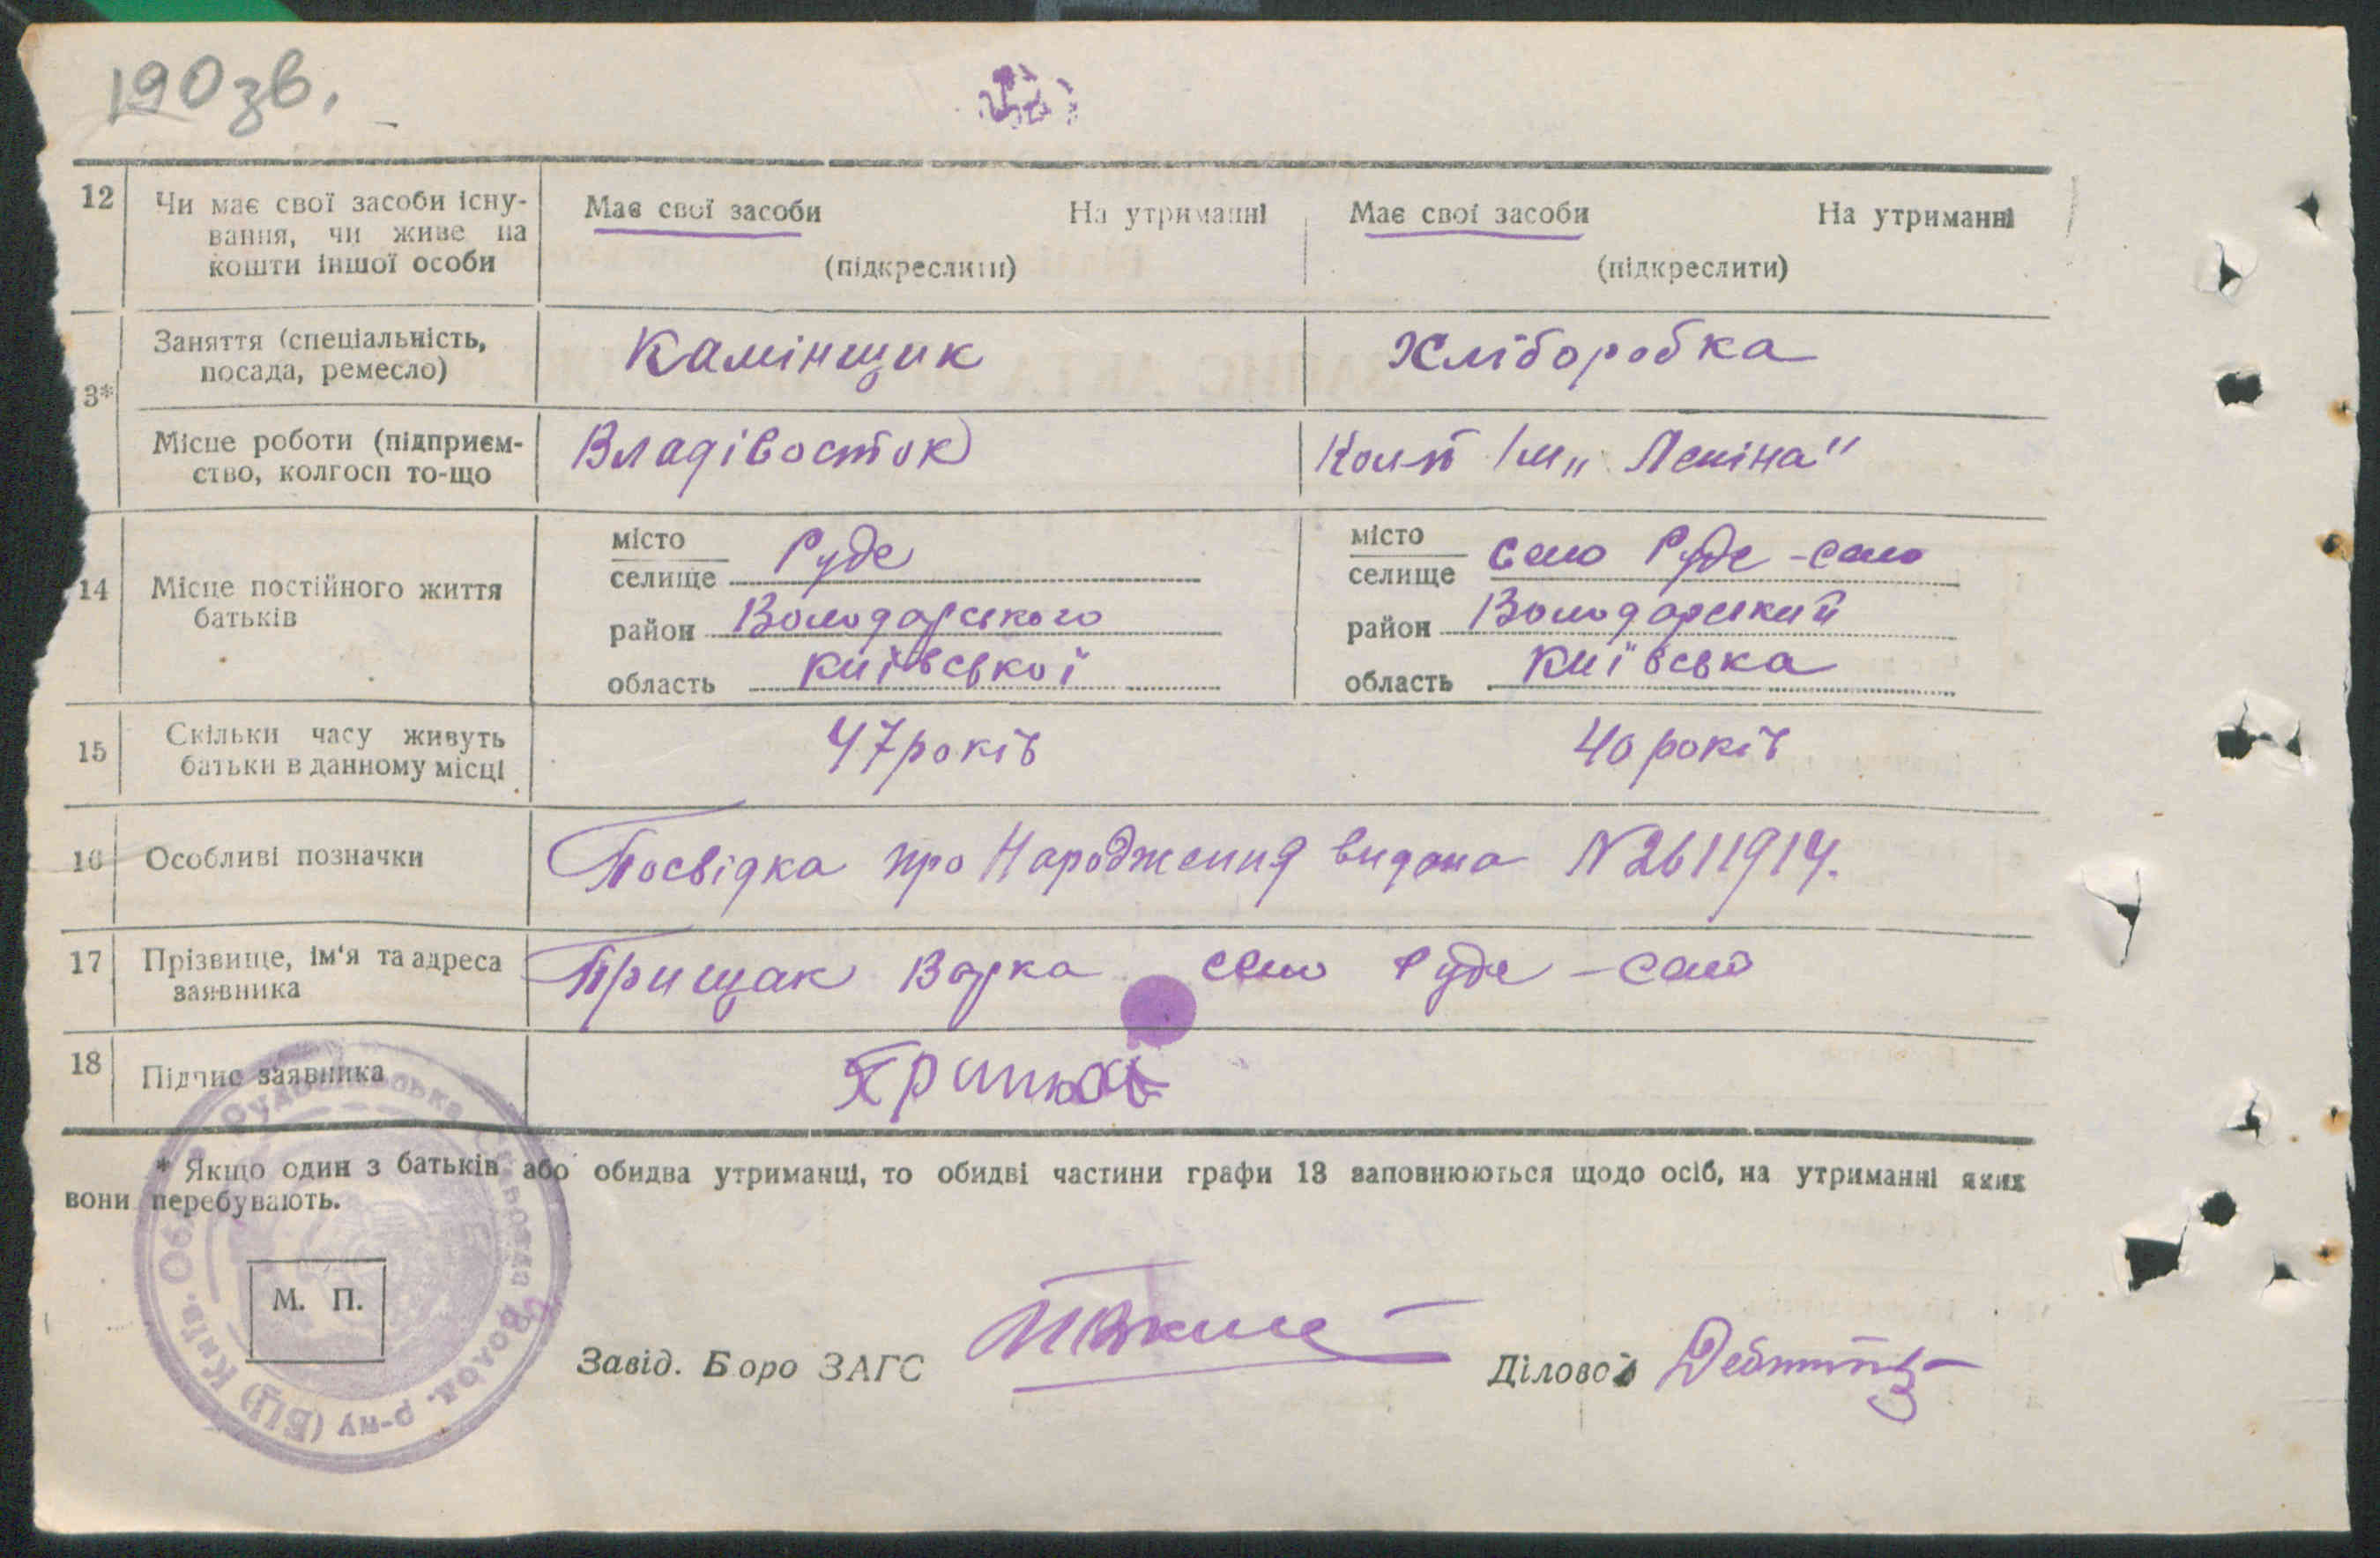 190 зв.
12
Чи має свої засоби існу-
вання, чи живе на
кошти іншої особи
Має свої засоби На утриманні
(підкреслити)
Має свої засоби На утриманні
(підкреслити)
3*
Заняття (спеціальність,
посада, ремесло)
Камінщик
Хліборобка
Місце роботи (підприєм-
ство, колгосп то-що
Владівосток
Колг Ім „Леніна"
14
Місце постійного життя
батьків
місто
селище Руде
район Володарського
область київської
місто
селище село Руде-село
район Володарський
область київська
15
Скільки часу живуть
батьки в данному місці
47 років
40 років
16
Особливі позначки
Посвідка про Народження видана N2611914.
17
Прізвище, ім'я та адреса
заявника
Прищак Варка село Руде-село
18
Підпис заявника
* Якщо один з батьків або обидва утриманці, то обидві частини графи 13 заповнюються щодо осіб, на утриманні яких
вони перебувають.
М. П.
Завід. Бюро ЗАГС
Діловод